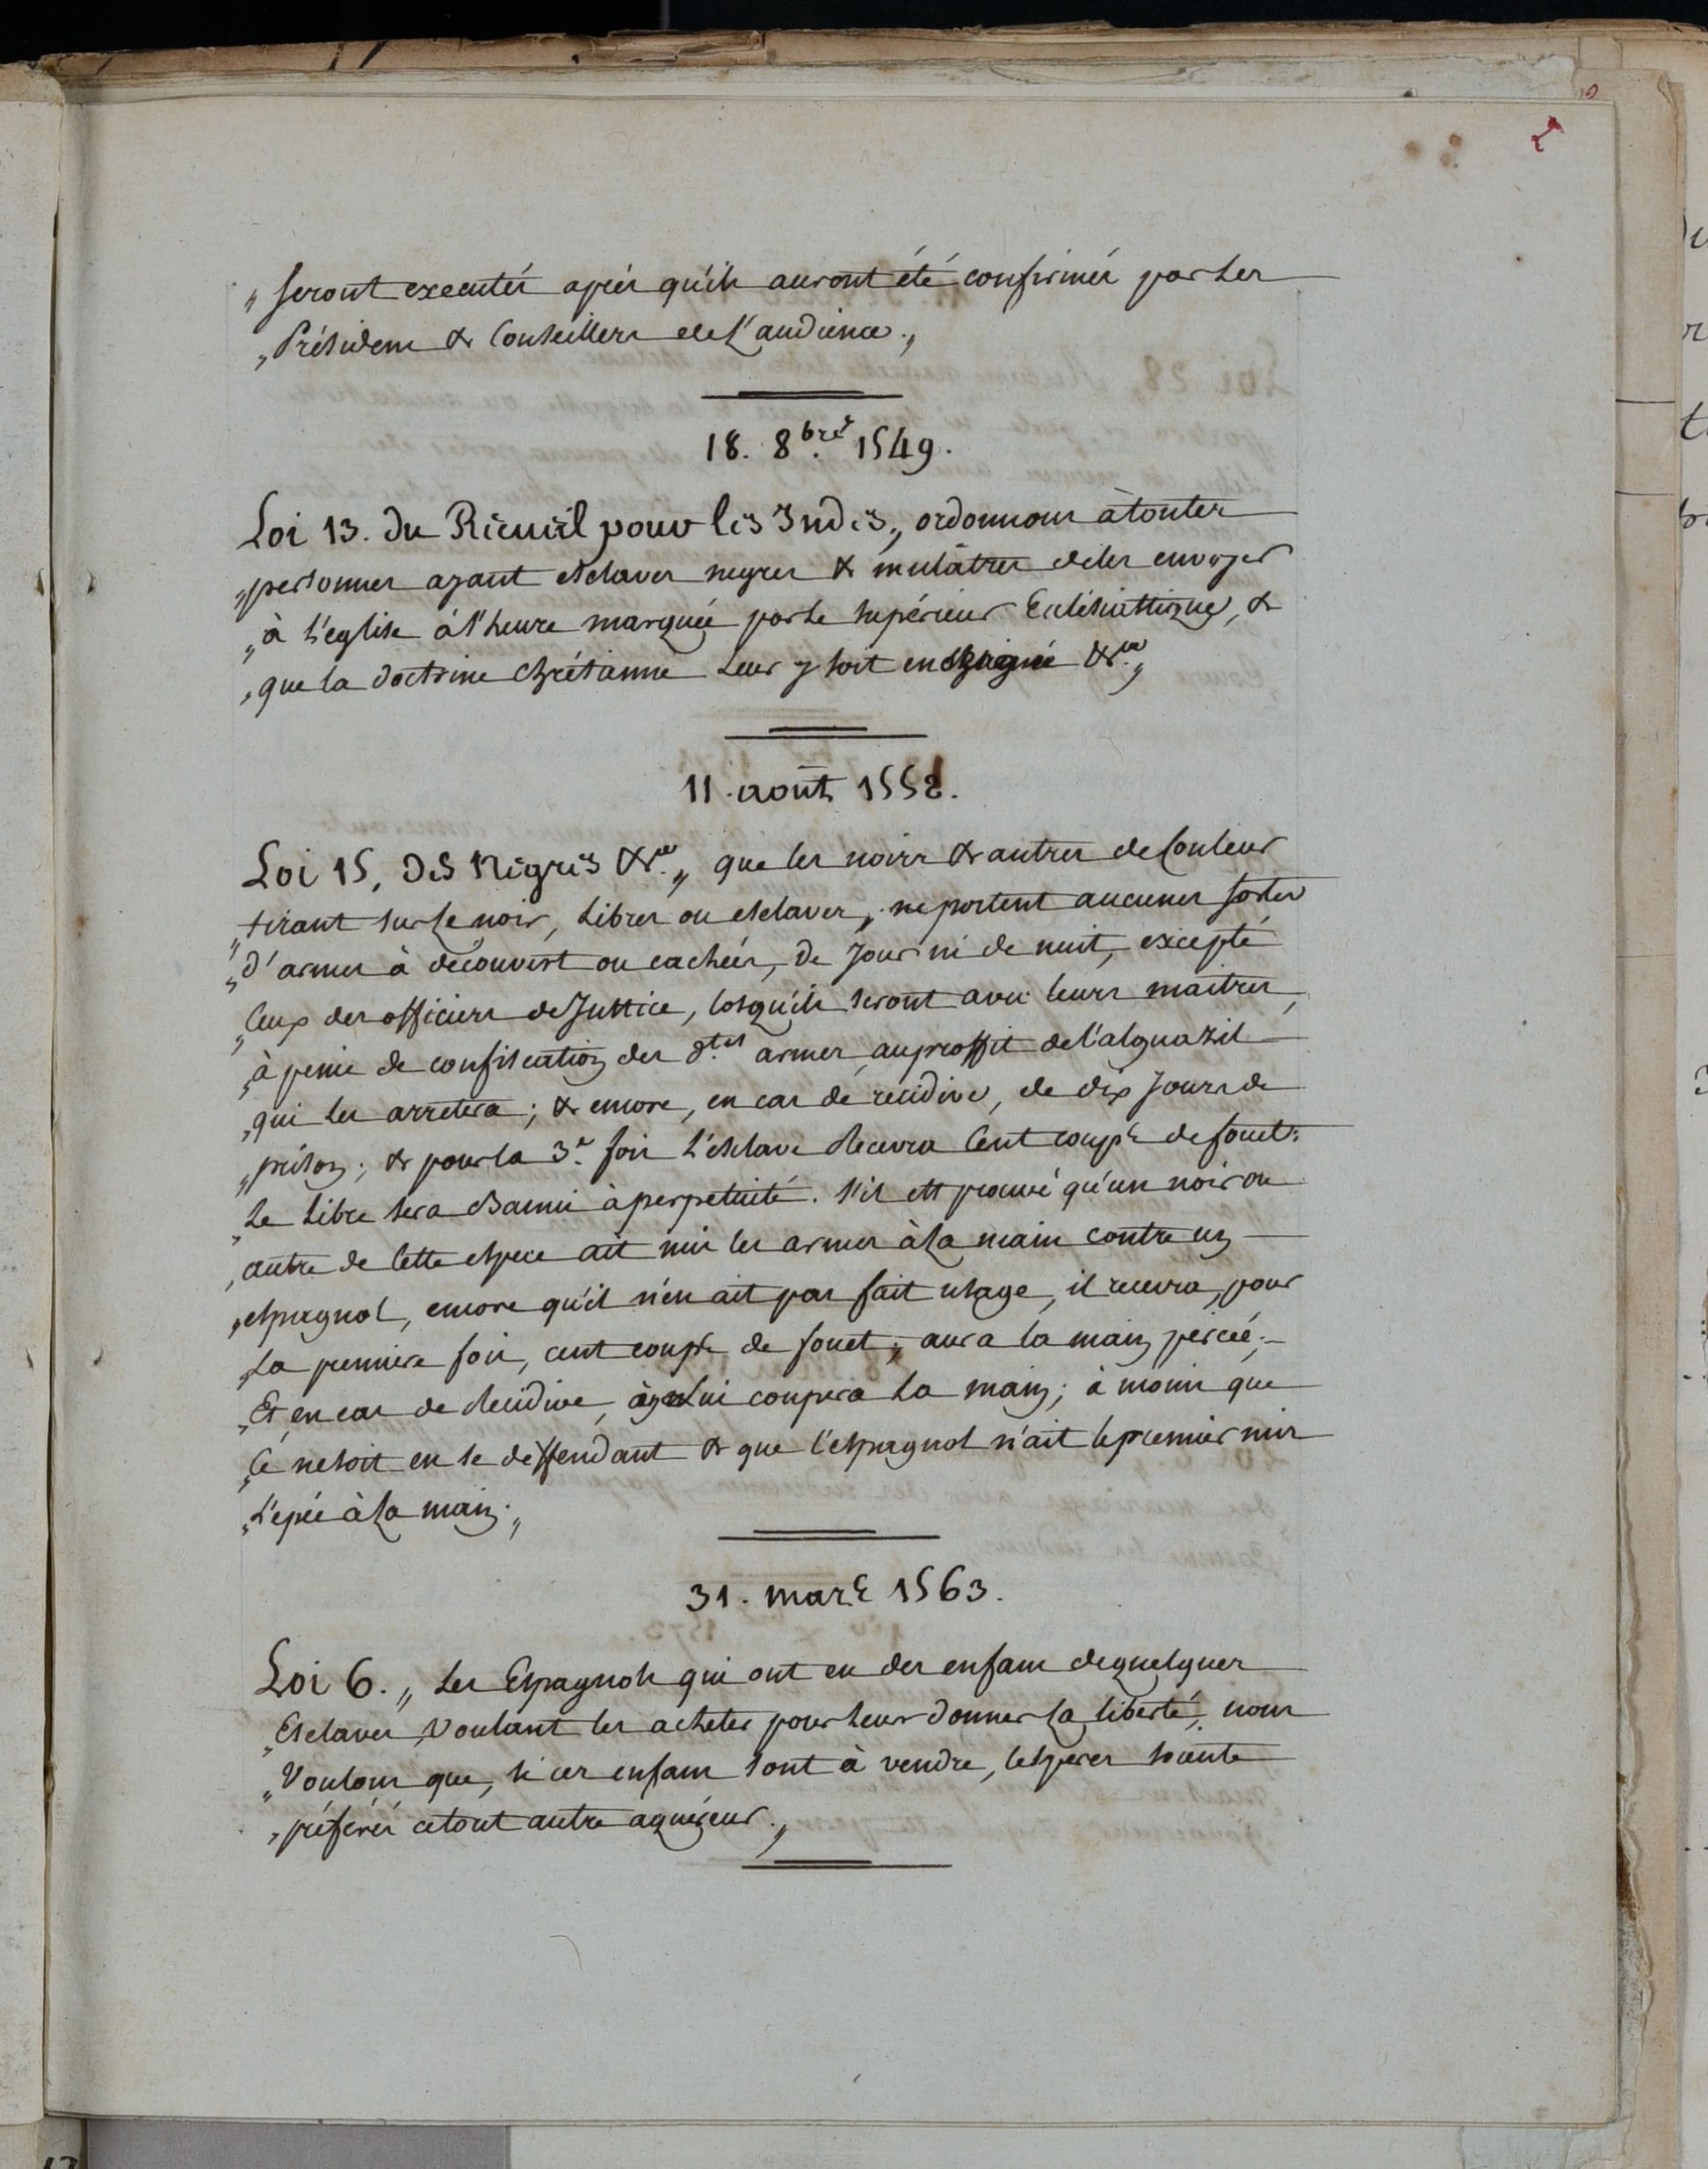 „ seront executés après qu'ils auront été confirmés par les
„ Présidens & Conseillers de L'audience. „
18. 8bre 1549.
Loi 13. du Recueil pour les Indes, „ ordonnons à toutes
„ personnes ayant esclaves negres & mulâtres de les envoyer
„ à l'eglise à l'heure marquée par le supérieur Ecclésiastique, &
„ que la doctrine chrétienne leur y soit enseignée &ca „
11. août 1552.
Loi 15, des Negres &ca „ que les noirs & autres de Couleur
„ tirant sur le noir, libres ou esclaves, ne portent aucunes sortes
„ d'armes à découvert ou cachées, de Jour ni de nuit, excepté
„ Ceux des officiers de Justice, lorsqu'ils seront avec leurs maitres,
„ à peine de confiscation des dtes armes, au proffit de l'alguazil
„ qui les arretera; & encore, en cas de recidive, de dix Jours de
„ prison; & pour la 3e fois L'esclave Recevra Cent coups de fouet:
„ Le Libre sera Banni à perpetuité. S'il est prouvé qu'un noir ou
„ autre de Cette espece ait mis les armes à la main contre un
„ espagnol, encore qu'il n'en ait pas fait usage, il recevra, pour
„ La premiere fois, cent coups de fouet; aura la main percée;
„ Et, en cas de Recidive, on Lui coupera La main; à moins que
„ Ce ne soit en se deffendant & que l'espagnol n'ait le premier mis
„ L'epée à la main. „
31. mars 1563.
Loi 6. „ Les Espagnols qui ont eu des enfans de quelques
„ Esclaves, Voulant les acheter pour leur donner la liberté, nous
„ Voulons que, si ces enfans sont à vendre, les peres soient
„ préférés à tout autre aquéreur. „